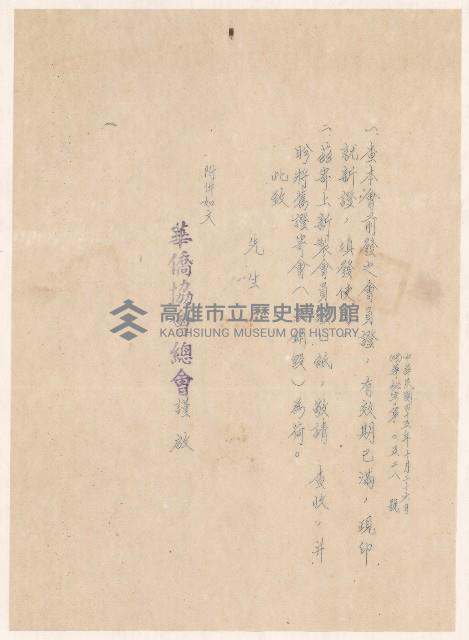 中華民國四十五年十月二十六日
華秘字第〇五二八號
一、查本會前發之會員證，有效期已滿，現印
就新證，填發使
二、茲寄上新製會員 紙，敬請 查收，并
盼將舊證寄會（ 銷毀）為荷。
此致
先生
附件如文
華僑協 總會 謹啟
高雄市立歷史博物館
KAOHSIUNG MUSEUM OF HISTORY